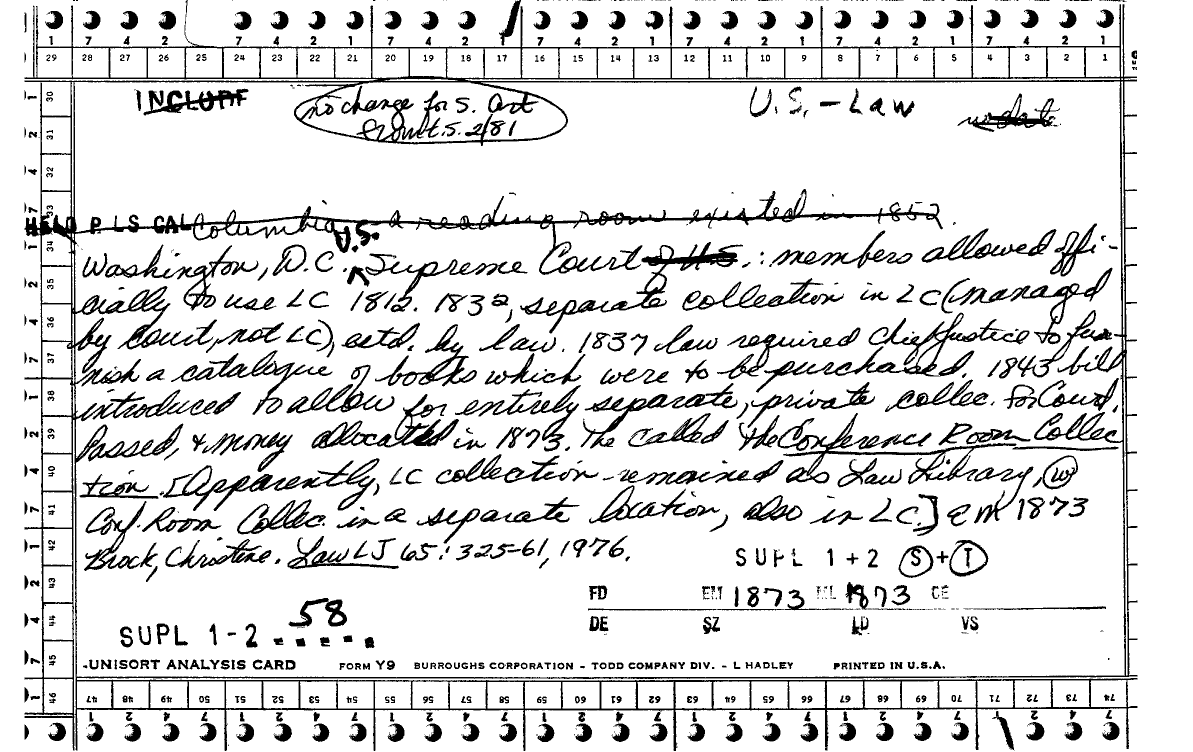 1 7 4 2 7 4 2 1 7 4 2 1 7 4 2 1 7 4 2 1 7 4 2 1 7 4 2 1
29 28 27 26 25 24 23 22 21 20 19 18 17 16 15 14 13 12 11 10 9 8 7 6 5 4 3 2 1
INCLUDE
no change for S. Art
from t.S. 2/81
U.S. - Law
no date
HELD P LS CAL Columbia a reading room existed in 1852.
U.S.
Washington, D.C. Supreme Court of U.S.: members allowed offi-
cially to use LC 1812. 1832, separate collection in LC (managed
by Court, not LC), estd. by law. 1837 law required Chief Justice to fur-
nish a catalogue of books which were to be purchased. 1843 bill
introduced to allow for entirely separate, private collec. for Court.
Passed, & money allocated in 1873. The called the Conference Room Collec
tion. [Apparently, LC collection remained as Law Library, w
Conf. Room Collec. in a separate location, also in LC.] em 1873
Brock, Christine. Law LJ 65: 325-61, 1976.
SUPL 1+2 S+T
FD EM 1873 ML 1873 CE
DE SZ LD VS
58
SUPL 1-2
UNISORT ANALYSIS CARD FORM Y9 BURROUGHS CORPORATION - TODD COMPANY DIV. - L HADLEY PRINTED IN U.S.A.
30
31
32
33
34
35
36
37
38
39
40
41
42
43
44
45
46
47 48 49 50 51 52 53 54 55 56 57 58 59 60 61 62 63 64 65 66 67 68 69 70 71 72 73 74